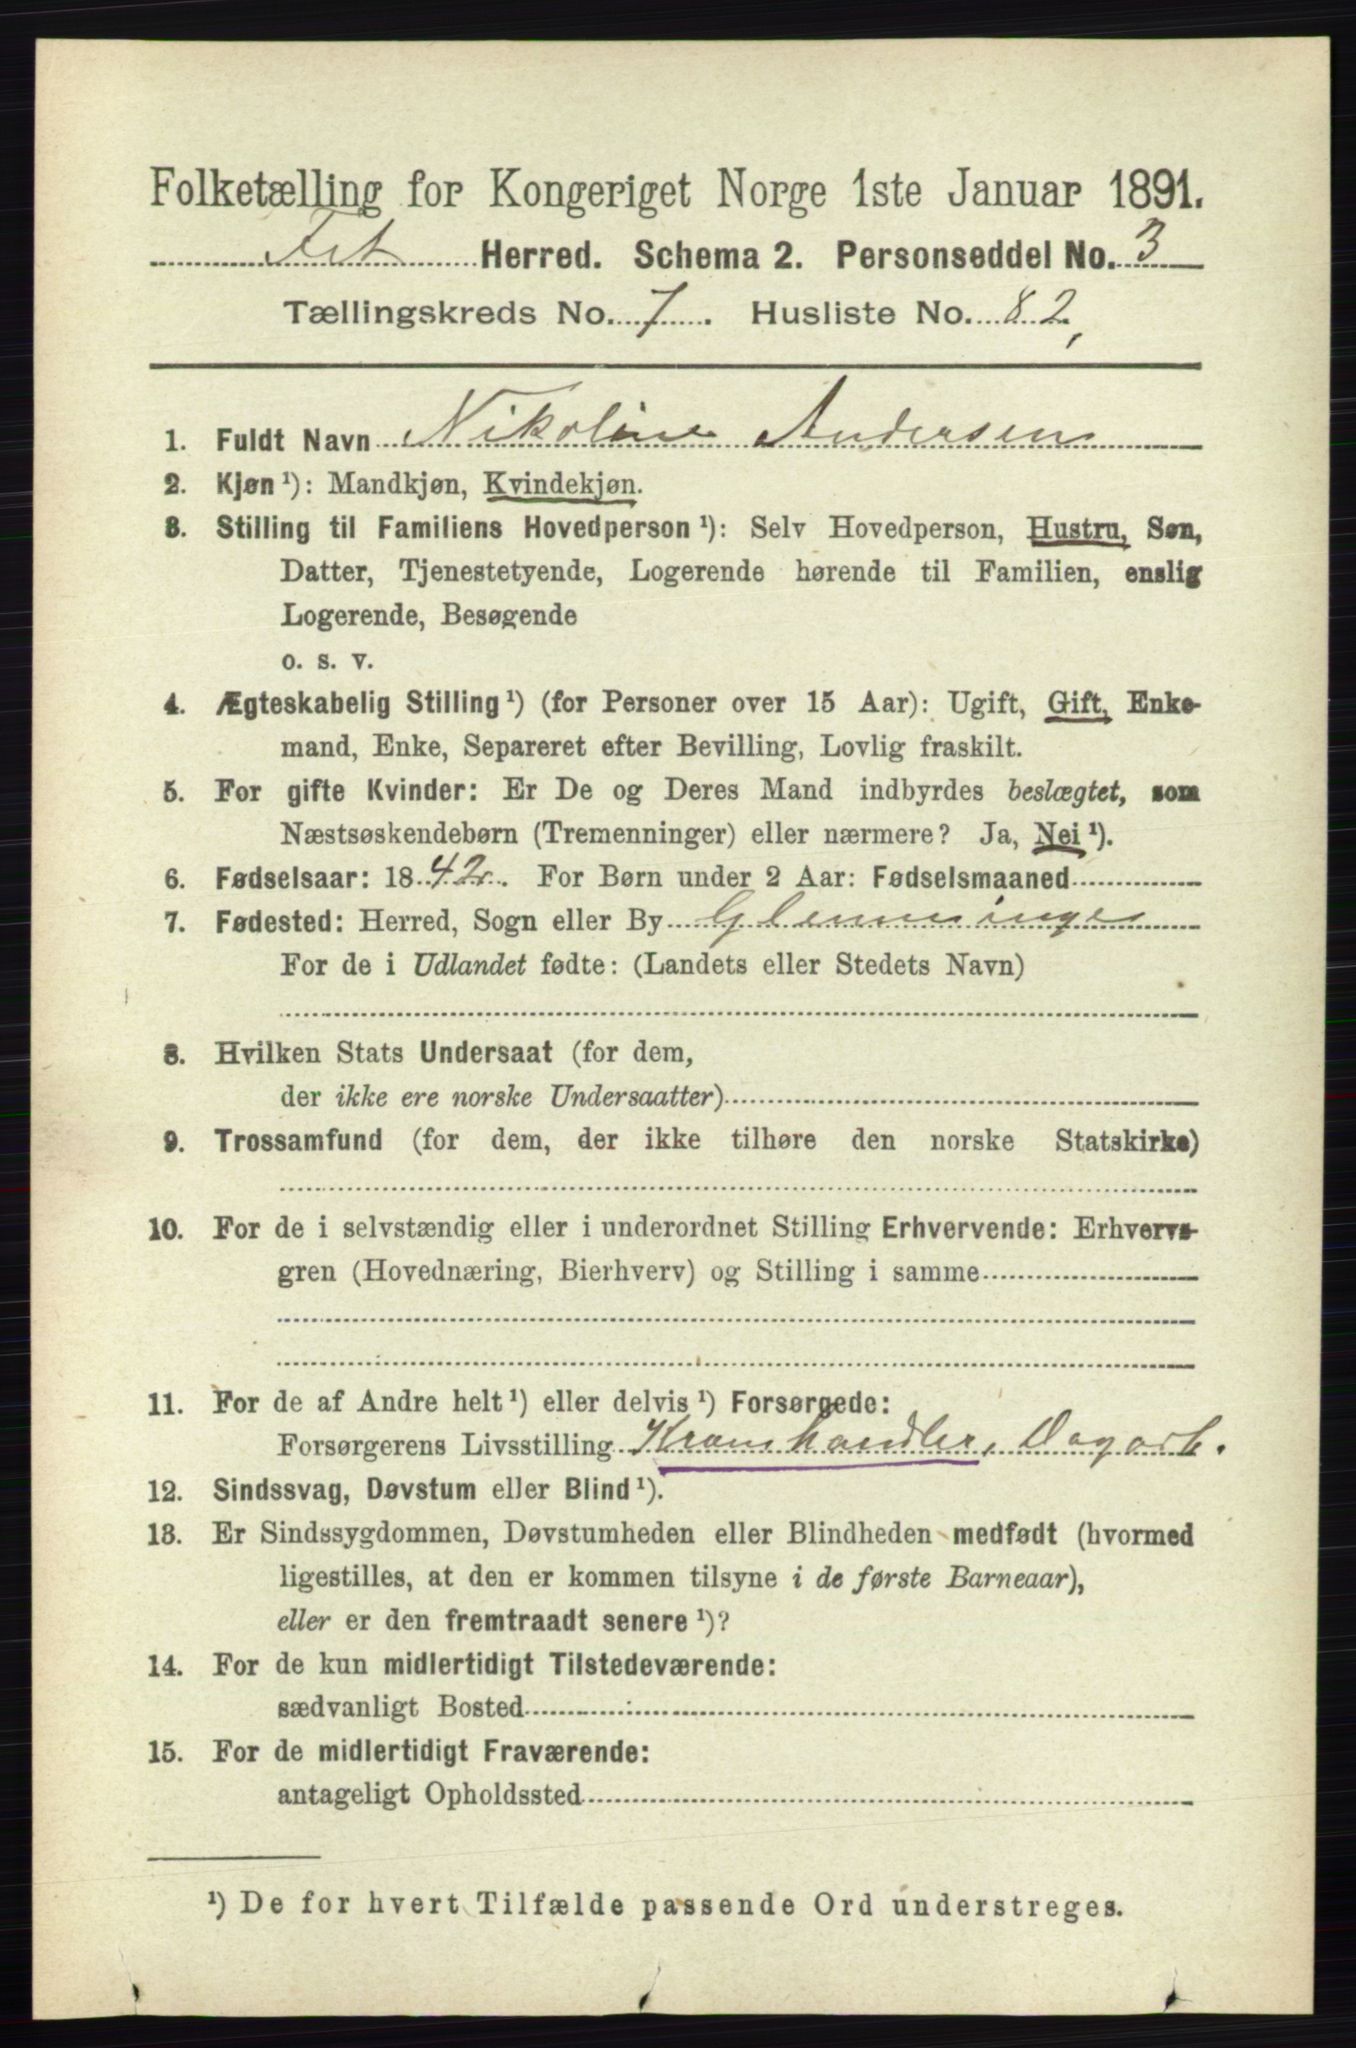 Folketælling for Kongeriget Norge 1ste Januar 1891.
Fet Herred. Schema 2. Personseddel No. 3
Tællingskreds No. 7. Husliste No. 82,
1. Fuldt Navn Nikoline Andersen
2. Kjøn ¹): Mandkjøn, Kvindekjøn.
3. Stilling til Familiens Hovedperson ¹): Selv Hovedperson, Hustru, Søn,
Datter, Tjenestetyende, Logerende hørende til Familien, enslig
Logerende, Besøgende
o. s. v.
4. Ægteskabelig Stilling ¹) (for Personer over 15 Aar): Ugift, Gift, Enke-
mand, Enke, Separeret efter Bevilling, Lovlig fraskilt.
5. For gifte Kvinder: Er De og Deres Mand indbyrdes beslægtet, som
Næstsøskendebørn (Tremenninger) eller nærmere? Ja, Nei ¹).
6. Fødselsaar: 1842. For Børn under 2 Aar: Fødselsmaaned
7. Fødested: Herred, Sogn eller By Glemminge
For de i Udlandet fødte: (Landets eller Stedets Navn)
8. Hvilken Stats Undersaat (for dem,
der ikke ere norske Undersaatter)
9. Trossamfund (for dem, der ikke tilhøre den norske Statskirke)
10. For de i selvstændig eller i underordnet Stilling Erhvervende: Erhvervs-
gren (Hovednæring, Bierhverv) og Stilling i samme
11. For de af Andre helt ¹) eller delvis ¹) Forsørgede:
Forsørgerens Livsstilling Kramhandler, Dagarb.
12. Sindssvag, Døvstum eller Blind ¹).
13. Er Sindssygdommen, Døvstumheden eller Blindheden medfødt (hvormed
ligestilles, at den er kommen tilsyne i de første Barneaar),
eller er den fremtraadt senere ¹)?
14. For de kun midlertidigt Tilstedeværende:
sædvanligt Bosted
15. For de midlertidigt Fraværende:
antageligt Opholdssted
¹) De for hvert Tilfælde passende Ord understreges.